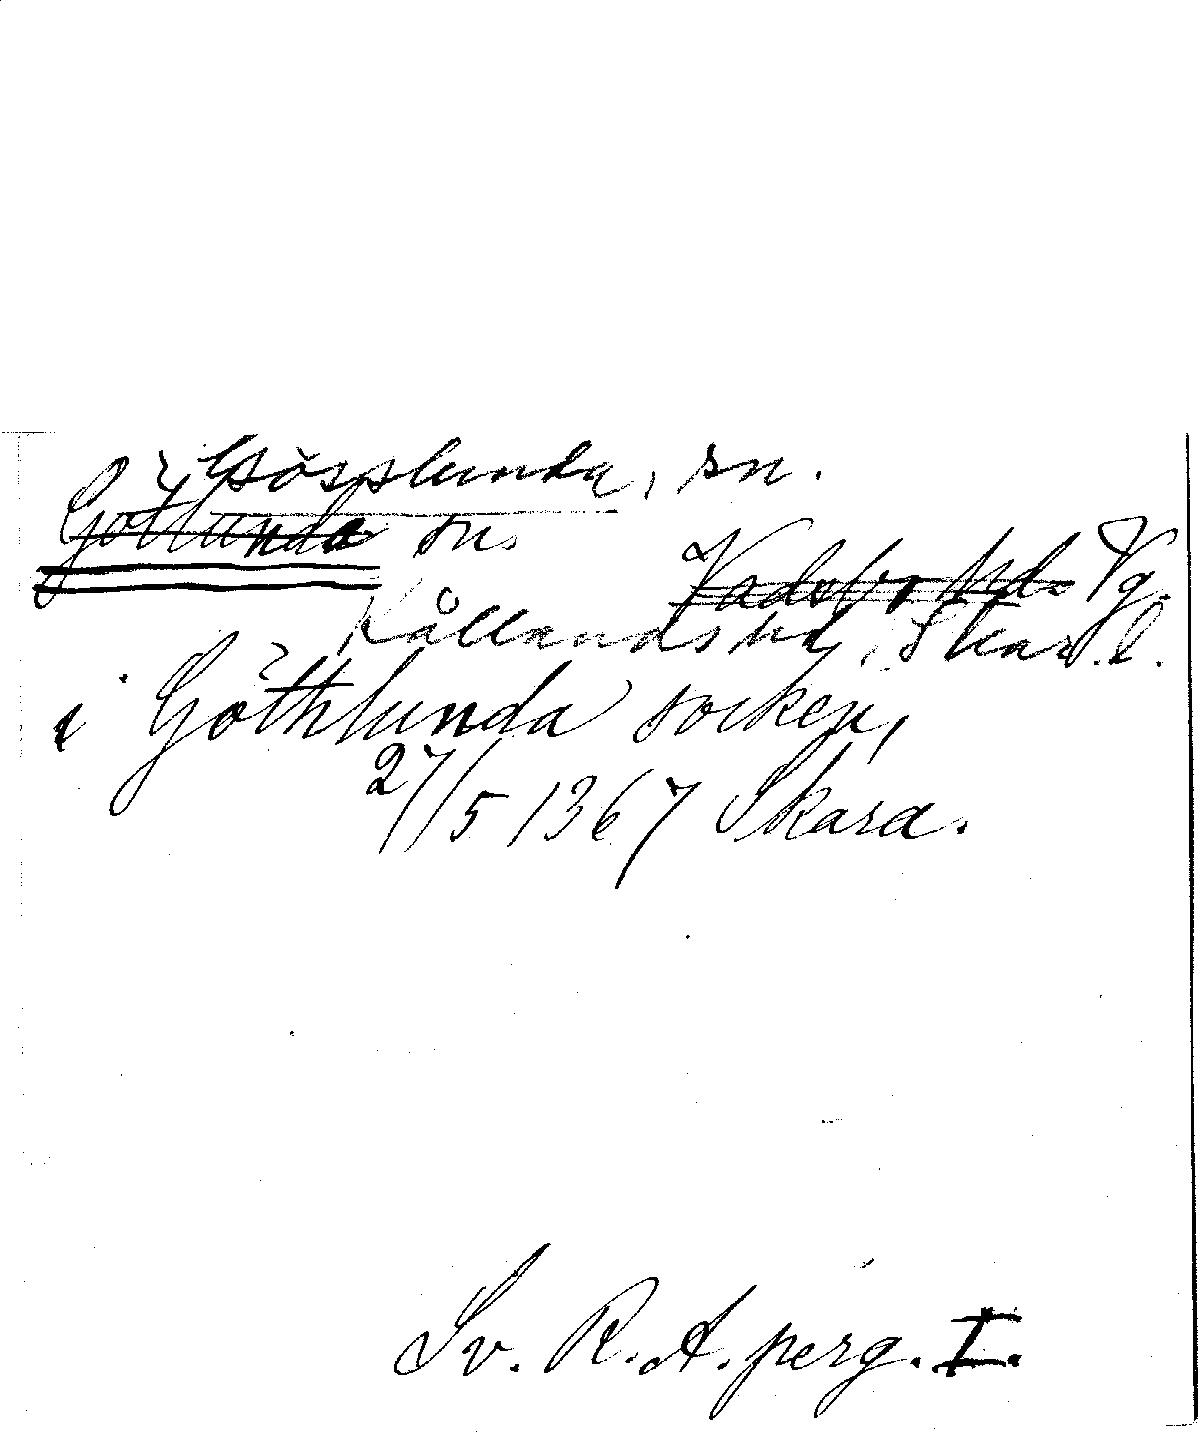 Gösslunda, sn.
Götlunda sn. Vadsbo hd. Vg.
Kållands hd, Skar. l.
i Göthlunda socken,
27/5 1367 Skara.
Sv. R. A. perg. I.